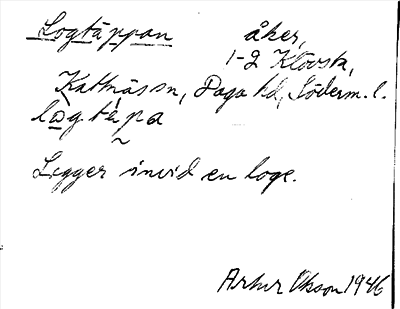 Logtäppan åker,
1-2 Klövsta,
Kattnäs sn, Daga hd, Söderm. l.
lo̲gtäpa
Ligger invid en loge.
Artur Ohson 1946